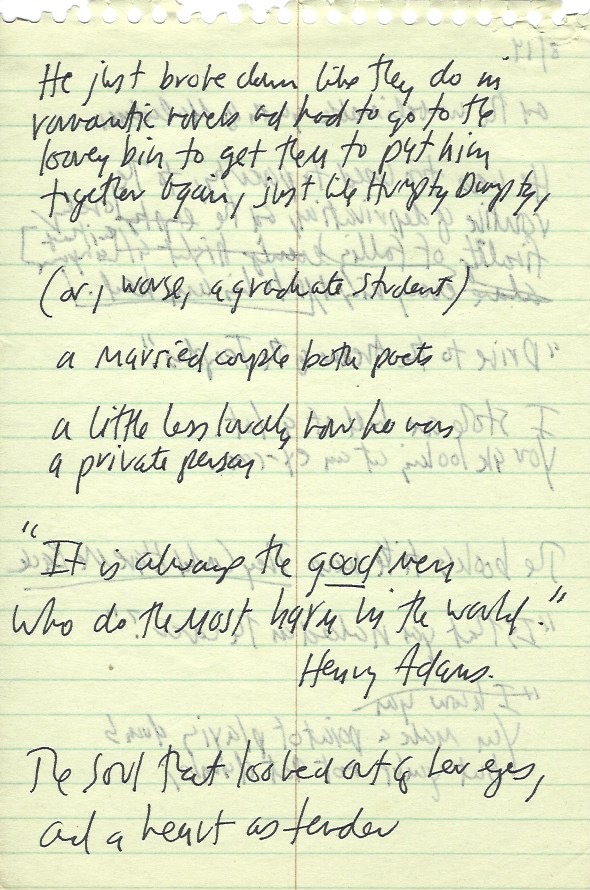 He just broke down like they do in
romantic novels and had to go to the
looney bin to get them to put him
together again, just like Humpty Dumpty,
(or, worse, a graduate student)
a married couple both poets
a little less loudly now he was
a private person
"It is always the good men
who do the most harm in the world."
Henry Adams.
The soul that looked out of her eyes,
and a heart as tender